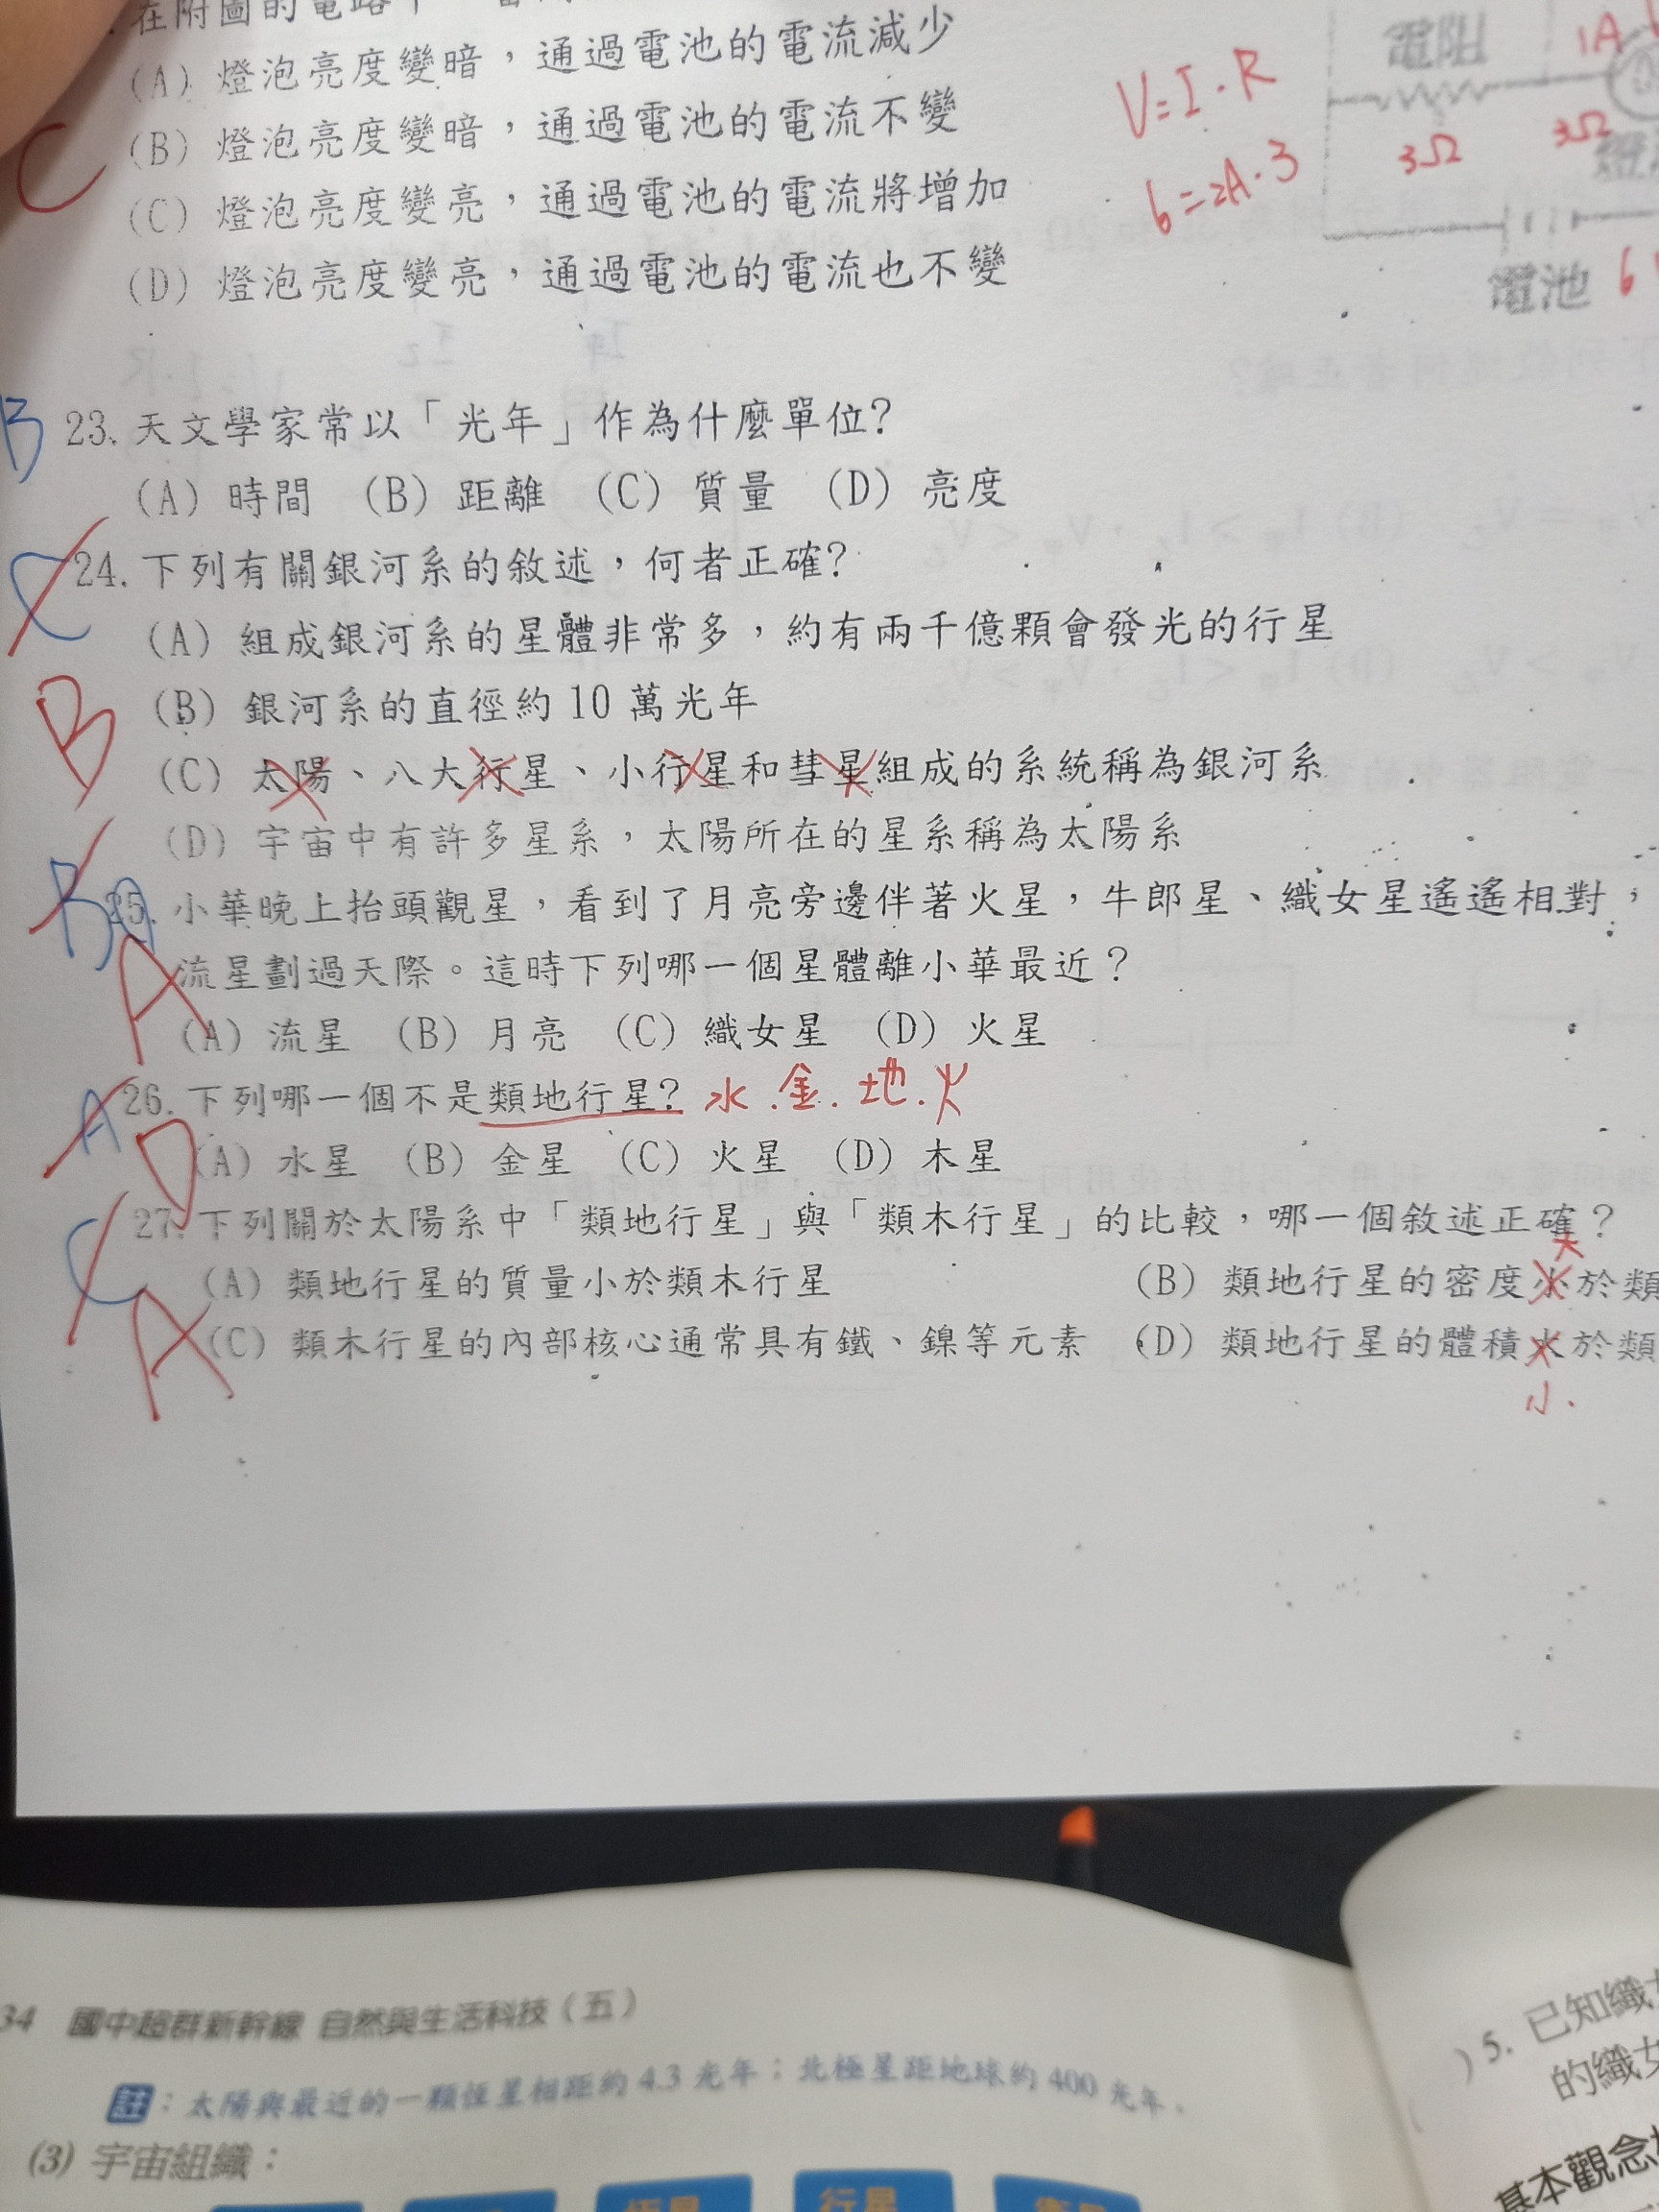 在附圖的電路中
(A) 燈泡亮度變暗，通過電池的電流減少
(B) 燈泡亮度變暗，通過電池的電流不變
(C) 燈泡亮度變亮，通過電池的電流將增加
(D) 燈泡亮度變亮，通過電池的電流也不變
C
V=I·R
6=2A·3
電阻
1A
3Ω
3Ω
電池
6
B 23. 天文學家常以「光年」作為什麼單位?
(A) 時間 (B) 距離 (C) 質量 (D) 亮度
C 24. 下列有關銀河系的敘述，何者正確?
(A) 組成銀河系的星體非常多，約有兩千億顆會發光的行星
B (B) 銀河系的直徑約 10 萬光年
(C) 太陽、八大行星、小行星和彗星組成的系統稱為銀河系
(D) 宇宙中有許多星系，太陽所在的星系稱為太陽系
B 25. 小華晚上抬頭觀星，看到了月亮旁邊伴著火星，牛郎星、織女星遙遙相對，
A 流星劃過天際。這時下列哪一個星體離小華最近？
(A) 流星 (B) 月亮 (C) 織女星 (D) 火星
A 26. 下列哪一個不是類地行星? 水.金.地.火
D (A) 水星 (B) 金星 (C) 火星 (D) 木星
C 27. 下列關於太陽系中「類地行星」與「類木行星」的比較，哪一個敘述正確？
大
(A) 類地行星的質量小於類木行星 (B) 類地行星的密度小於類
A (C) 類木行星的內部核心通常具有鐵、鎳等元素 (D) 類地行星的體積大於類
小.
34 國中超群新幹線 自然與生活科技（五）
註：太陽與最近的一顆恆星相距約 4.3 光年；北極星距地球約 400 光年。
(3) 宇宙組織：
恆星
行星
) 5. 已知織女
的織女
基本觀念